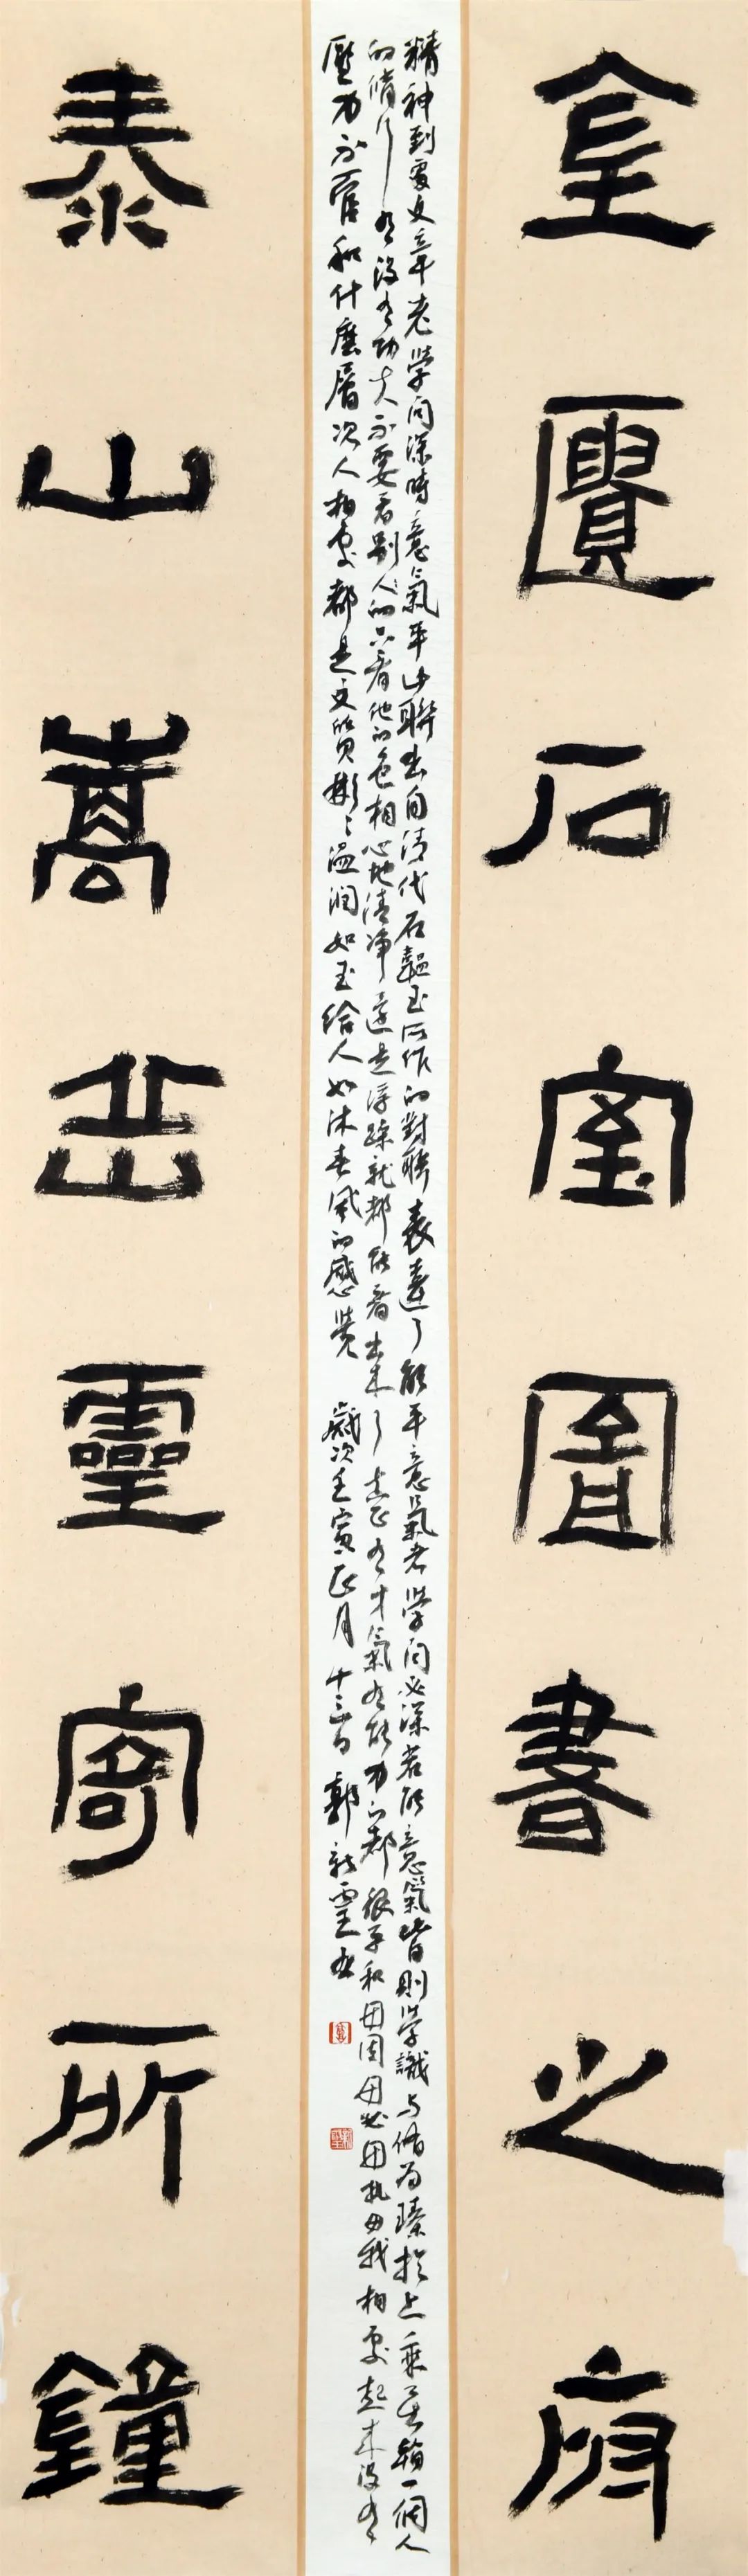 金匱石室圖書之府
精神到處文章老學問深時意氣平此聯出自清代石韞玉所作的對聯表達了能平意氣者學問必深若能意氣皆則學識與修為臻於上乘 一個人
的修行有沒有功夫不要看別人的只看他的色相心地清淨還是浮躁就都能看出來了真正有才氣有能力的都很平和毋固毋必毋執毋我相處起來沒有
壓力不管和什麼層次人相處都是文質彬彬溫潤如玉給人如沐春風的感覺 歲次壬寅正月十三日郭新 
泰山嵩岱靈寄所鐘